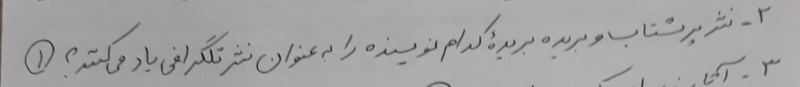 ۲- نثر پرشتاب و بریده بریدهٔ کدام نویسنده را به عنوان نثر تلگرافی یاد می‌کنند؟ (۱)
۳-